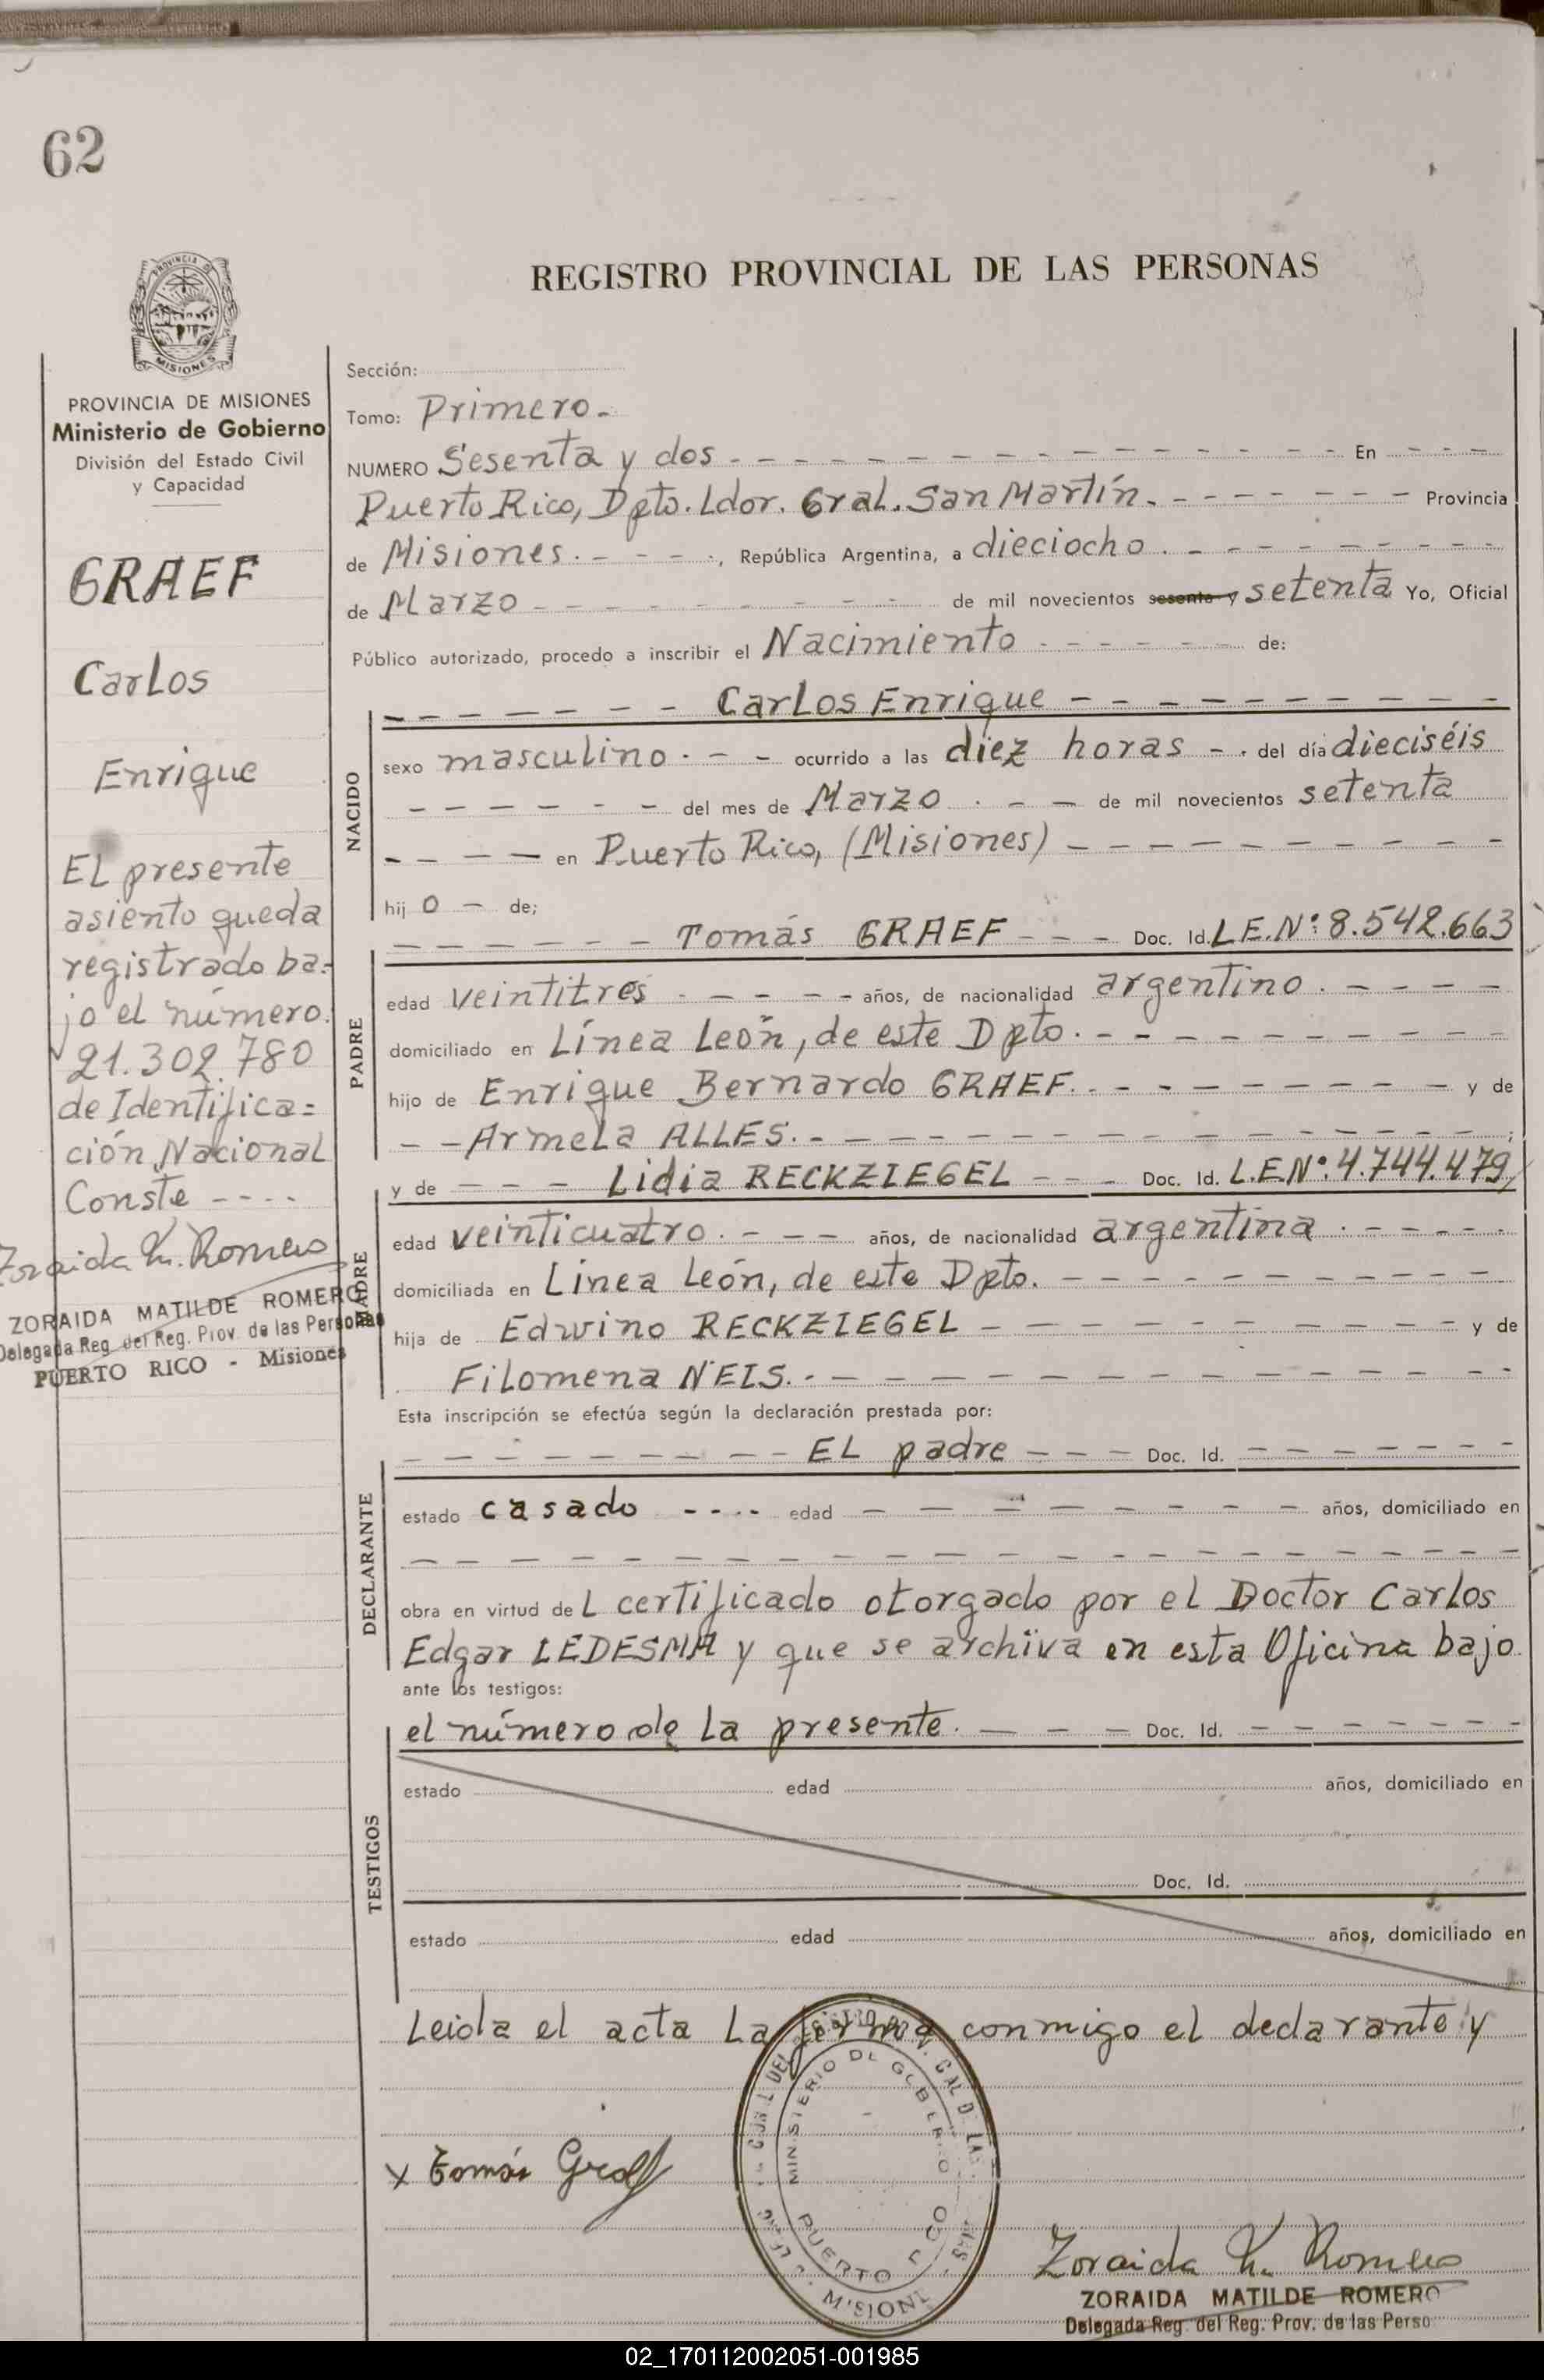 62
PROVINCIA DE
MISIONES
REGISTRO PROVINCIAL DE LAS PERSONAS
PROVINCIA DE MISIONES
Ministerio de Gobierno
División del Estado Civil
y Capacidad
GRAEF
Carlos
Enrique
EL presente
asiento queda
registrado ba=
jo el número
21.302.780
de Identifica=
ción Nacional
Conste ----
Zoraida M. Romero
ZORAIDA MATILDE ROMERO
Delegada Reg. del Reg. Prov. de las Personas
PUERTO RICO - Misiones
Sección:
Tomo: Primero.-
NUMERO Sesenta y dos - - - En - - -
Puerto Rico, Dpto. Ldor. Gral. San Martín. - - - Provincia
de Misiones. - - -, República Argentina, a dieciocho. - - -
de Marzo - - - de mil novecientos sesenta y setenta Yo, Oficial
Público autorizado, procedo a inscribir el Nacimiento - - - de:
NACIDO
- - - Carlos Enrique - - -
sexo masculino. - - ocurrido a las diez horas - . del día dieciséis
- - - del mes de Marzo . - - de mil novecientos setenta
- - - en Puerto Rico, (Misiones) - - -
hij o - de;
PADRE
- - - Tomás GRAEF - - - Doc. Id. L.E.Nº: 8.542.663
edad veintitres - - - años, de nacionalidad argentino. - - -
domiciliado en Línea León, de este Dpto. - - -
hijo de Enrique Bernardo GRAEF. - - - y de
- - Armela ALLES. - - - ;
MADRE
y de - - - Lidia RECKZIEGEL - - - Doc. Id. L.E.Nº: 4.744.479,
edad veinticuatro. - - - años, de nacionalidad argentina. - - -
domiciliada en Linea León, de este Dpto. - - -
hija de Edwino RECKZIEGEL - - - y de
Filomena NEIS. - - -
Esta inscripción se efectúa según la declaración prestada por:
DECLARANTE
- - - EL padre - - - Doc. Id. - - -
estado casado ---- edad - - - años, domiciliado en
- - -
obra en virtud de L certificado otorgado por el Doctor Carlos
Edgar LEDESMA y que se archiva en esta Oficina bajo
ante los testigos:
el número de La presente. - - - Doc. Id. - - -
TESTIGOS
estado edad años, domiciliado en
Doc. Id.
estado edad años, domiciliado en
Leida el acta La firma conmigo el declarante y
MINISTERIO DE GOBIERNO
PUERTO RICO
MISIONES
x Tomás Graef
Zoraida M. Romero
ZORAIDA MATILDE ROMERO
Delegada Reg. del Reg. Prov. de las Perso
02_170112002051-001985